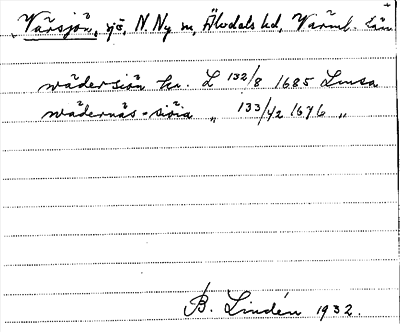 Värsjön, sjö, N Ny sn, Älvdals hd, Värml. län
wädersiön kr. L 132/8 1685 Linsa
wädernäs-siöia „ 133/42 1676 „
B. Lindén 1932.